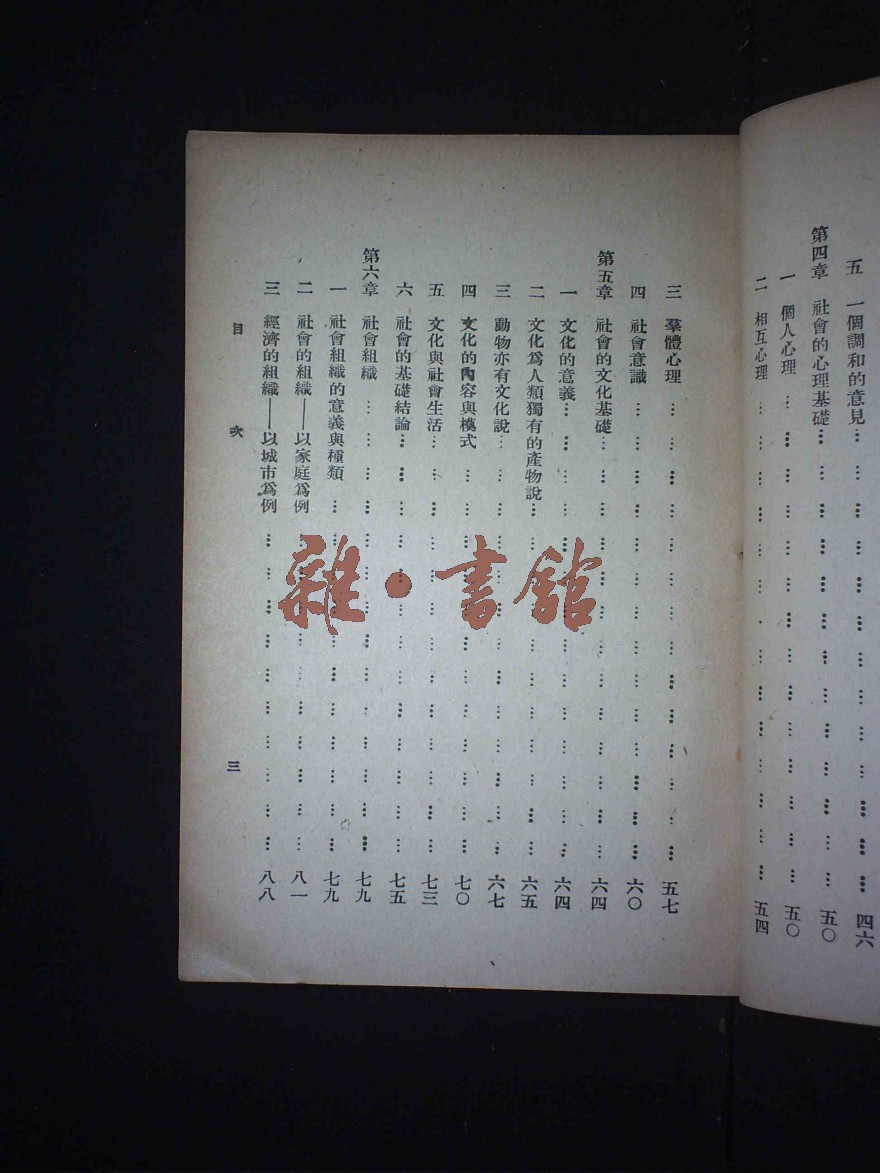 五　一個調和的意見………………四六
第四章　社會的心理基礎………………五〇
一　個人心理………………五〇
二　相互心理………………五四
三　羣體心理………………五七
四　社會意識………………六〇
第五章　社會的文化基礎………………六四
一　文化的意義………………六四
二　文化爲人類獨有的產物說………………六五
三　動物亦有文化說………………六七
四　文化的內容與模式………………七〇
五　文化與社會生活………………七三
六　社會的基礎結論………………七五
第六章　社會組織………………七九
一　社會組織的意義與種類………………七九
二　社會的組織——以家庭爲例………………八一
三　經濟的組織——以城市爲例………………八八
目　次　三
雜·書館